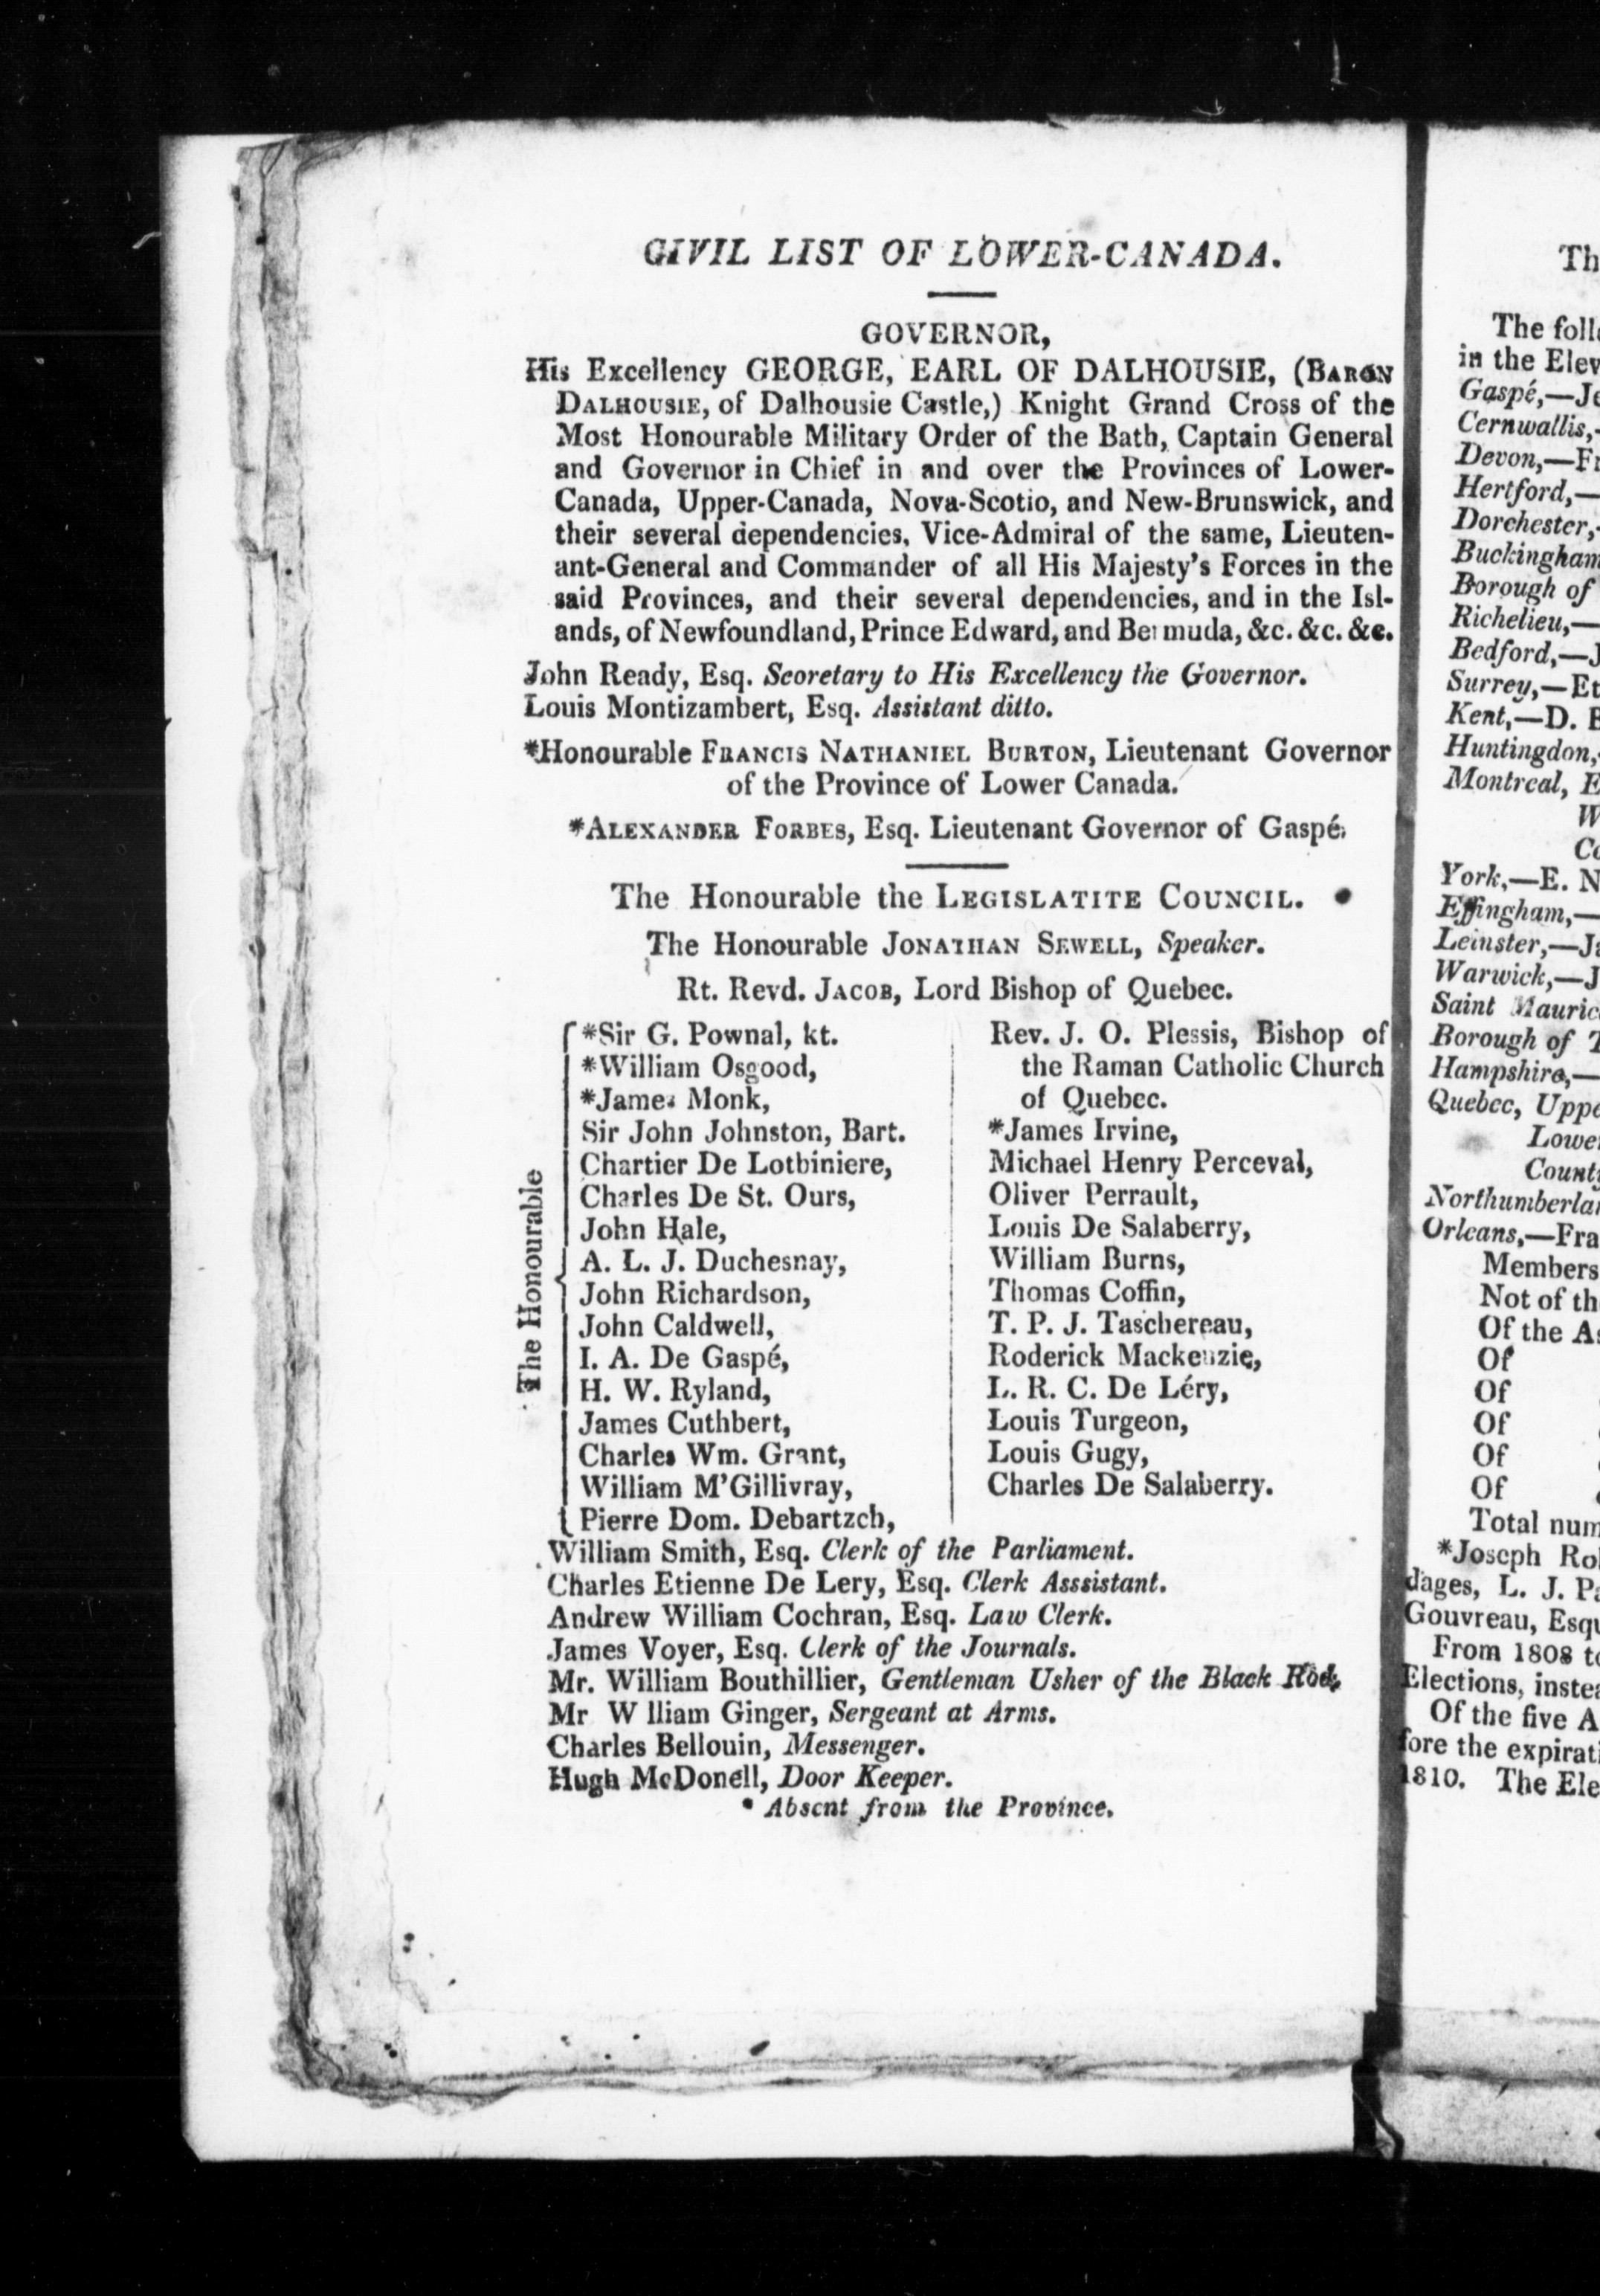 CIVIL LIST OF LOWER-CANADA.
GOVERNOR,
His Excellency GEORGE, EARL OF DALHOUSIE, (BARON
DALHOUSIE, of Dalhousie Castle,) Knight Grand Cross of the
Most Honourable Military Order of the Bath, Captain General
and Governor in Chief in and over the Provinces of Lower-
Canada, Upper-Canada, Nova-Scotio, and New-Brunswick, and
their several dependencies, Vice-Admiral of the same, Lieuten-
ant-General and Commander of all His Majesty's Forces in the
said Provinces, and their several dependencies, and in the Isl-
ands, of Newfoundland, Prince Edward, and Bermuda, &c. &c. &c.
John Ready, Esq. Secretary to His Excellency the Governor.
Louis Montizambert, Esq. Assistant ditto.
*Honourable FRANCIS NATHANIEL BURTON, Lieutenant Governor
of the Province of Lower Canada.
*ALEXANDER FORBES, Esq. Lieutenant Governor of Gaspé.
The Honourable the LEGISLATITE COUNCIL.
The Honourable JONATHAN SEWELL, Speaker.
Rt. Revd. JACOB, Lord Bishop of Quebec.
The Honourable
*Sir G. Pownal, kt.
*William Osgood,
*James Monk,
Sir John Johnston, Bart.
Chartier De Lotbiniere,
Charles De St. Ours,
John Hale,
A. L. J. Duchesnay,
John Richardson,
John Caldwell,
I. A. De Gaspé,
H. W. Ryland,
James Cuthbert,
Charles Wm. Grant,
William M'Gillivray,
Pierre Dom. Debartzch,
Rev. J. O. Plessis, Bishop of
the Raman Catholic Church
of Quebec.
*James Irvine,
Michael Henry Perceval,
Oliver Perrault,
Louis De Salaberry,
William Burns,
Thomas Coffin,
T. P. J. Taschereau,
Roderick Mackenzie,
L. R. C. De Léry,
Louis Turgeon,
Louis Gugy,
Charles De Salaberry.
William Smith, Esq. Clerk of the Parliament.
Charles Etienne De Lery, Esq. Clerk Asssistant.
Andrew William Cochran, Esq. Law Clerk.
James Voyer, Esq. Clerk of the Journals.
Mr. William Bouthillier, Gentleman Usher of the Black Rod.
Mr W lliam Ginger, Sergeant at Arms.
Charles Bellouin, Messenger.
Hugh McDonell, Door Keeper.
* Absent from the Province.
Th
The foll
in the Elev
Gaspé,—Je
Cernwallis,-
Devon,—Fr
Hertford,—
Dorchester,-
Buckingham
Borough of
Richelieu,—
Bedford,—J
Surrey,—Et
Kent,—D. B
Huntingdon,-
Montreal, E
W
Co
York,—E. N
Effingham,—
Leinster,—Ja
Warwick,—J
Saint Mauric
Borough of T
Hampshire,—
Quebec, Uppe
Lower
County
Northumberlan
Orleans,—Fra
Members
Not of th
Of the As
Of
Of
Of
Of
Of
Total num
*Joseph Rol
dages, L. J. Pa
Gouvreau, Esqu
From 1808 to
Elections, instea
Of the five A
fore the expirati
1810. The Ele